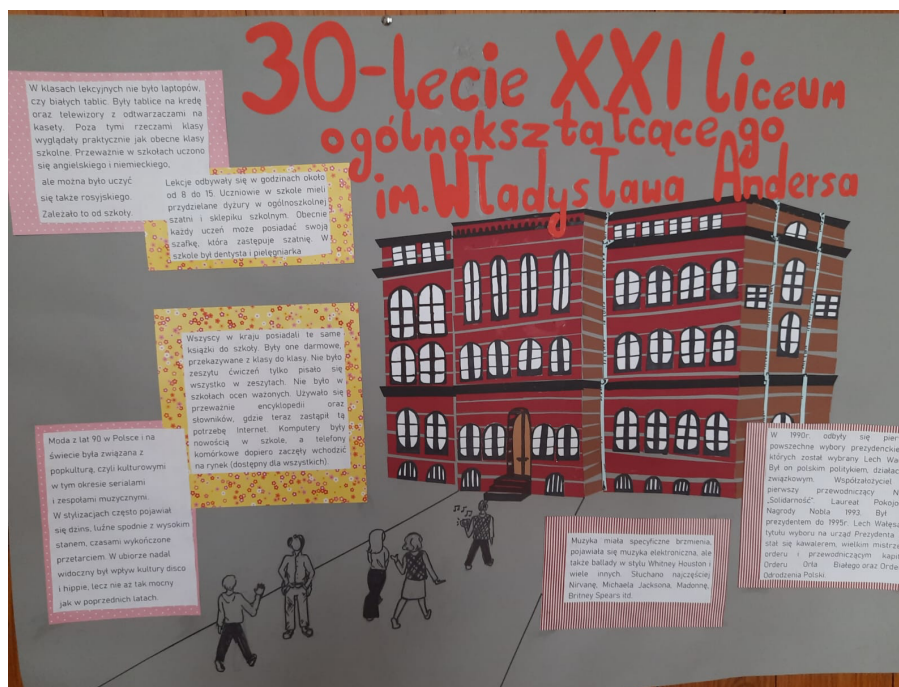 30-lecie XXI liceum
ogólnokształcącego
im. Władysława Andersa
W klasach lekcyjnych nie było laptopów,
czy białych tablic. Były tablice na kredę
oraz telewizory z odtwarzaczami na
kasety. Poza tymi rzeczami klasy
wyglądały praktycznie jak obecne klasy
szkolne. Przeważnie w szkołach uczono
się angielskiego i niemieckiego,
ale można było uczyć
się także rosyjskiego.
Zależało to od szkoły.
Lekcje odbywały się w godzinach około
od 8 do 15. Uczniowie w szkole mieli
przydzielane dyżury w ogólnoszkolnej
szatni i sklepiku szkolnym. Obecnie
każdy uczeń może posiadać swoją
szafkę, która zastępuje szatnię. W
szkole był dentysta i pielęgniarka
Wszyscy w kraju posiadali te same
książki do szkoły. Były one darmowe,
przekazywane z klasy do klasy. Nie było
zeszytu ćwiczeń tylko pisało się
wszystko w zeszytach. Nie było w
szkołach ocen ważonych. Używało się
przeważnie encyklopedii oraz
słowników, gdzie teraz zastąpił tą
potrzebę Internet. Komputery były
nowością w szkole, a telefony
komórkowe dopiero zaczęły wchodzić
na rynek (dostępny dla wszystkich).
Moda z lat 90 w Polsce i na
świecie była związana z
popkulturą, czyli kulturowymi
w tym okresie serialami
i zespołami muzycznymi.
W stylizacjach często pojawiał
się dżins, luźne spodnie z wysokim
stanem, czasami wykończone
przetarciem. W ubiorze nadal
widoczny był wpływ kultury disco
i hippie, lecz nie aż tak mocny
jak w poprzednich latach.
Muzyka miała specyficzne brzmienia,
pojawiała się muzyka elektroniczna, ale
także ballady w stylu Whitney Houston i
wiele innych. Słuchano najczęściej
Nirvanę, Michaela Jacksona, Madonnę,
Britney Spears itd.
W 1990r. odbyły się
powszechne wybory prezydenckie
których został wybrany Lech
Był on polskim politykiem,
związkowym. Współzałożyciel
pierwszy przewodniczący
„Solidarność". Laureat
Nagrody Nobla 1993. Był
prezydentem do 1995r. Lech
tytułu wyboru na urząd Prezydenta
stał się kawalerem, wielkim
orderu i przewodniczącym
Orderu Orła Białego oraz
Odrodzenia Polski.